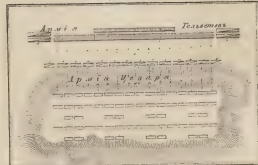 Армія Гельветовъ
Армія Цезаря